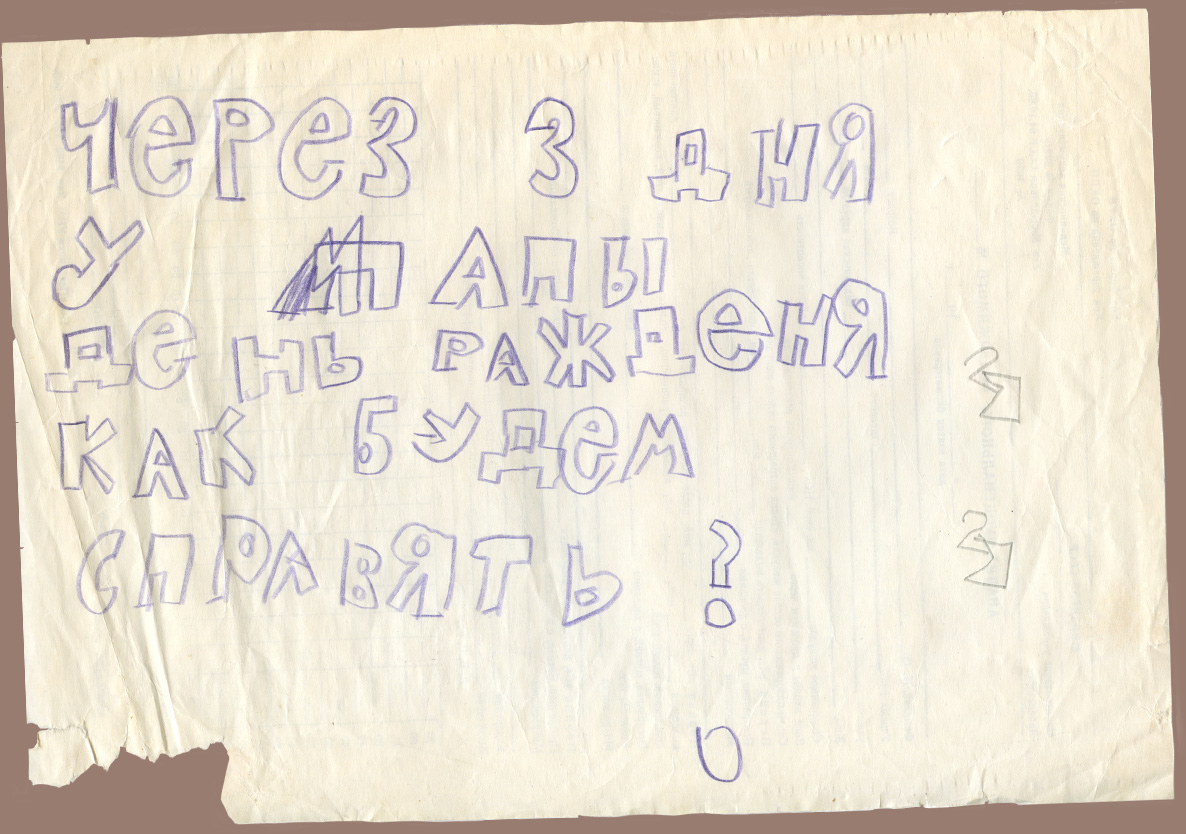 ЧЕРЕЗ 3 ДНЯ
У ПАПЫ
ДЕНЬ РАЖДЕНЯ
КАК БУДЕМ
СПРАВЯТЬ ?